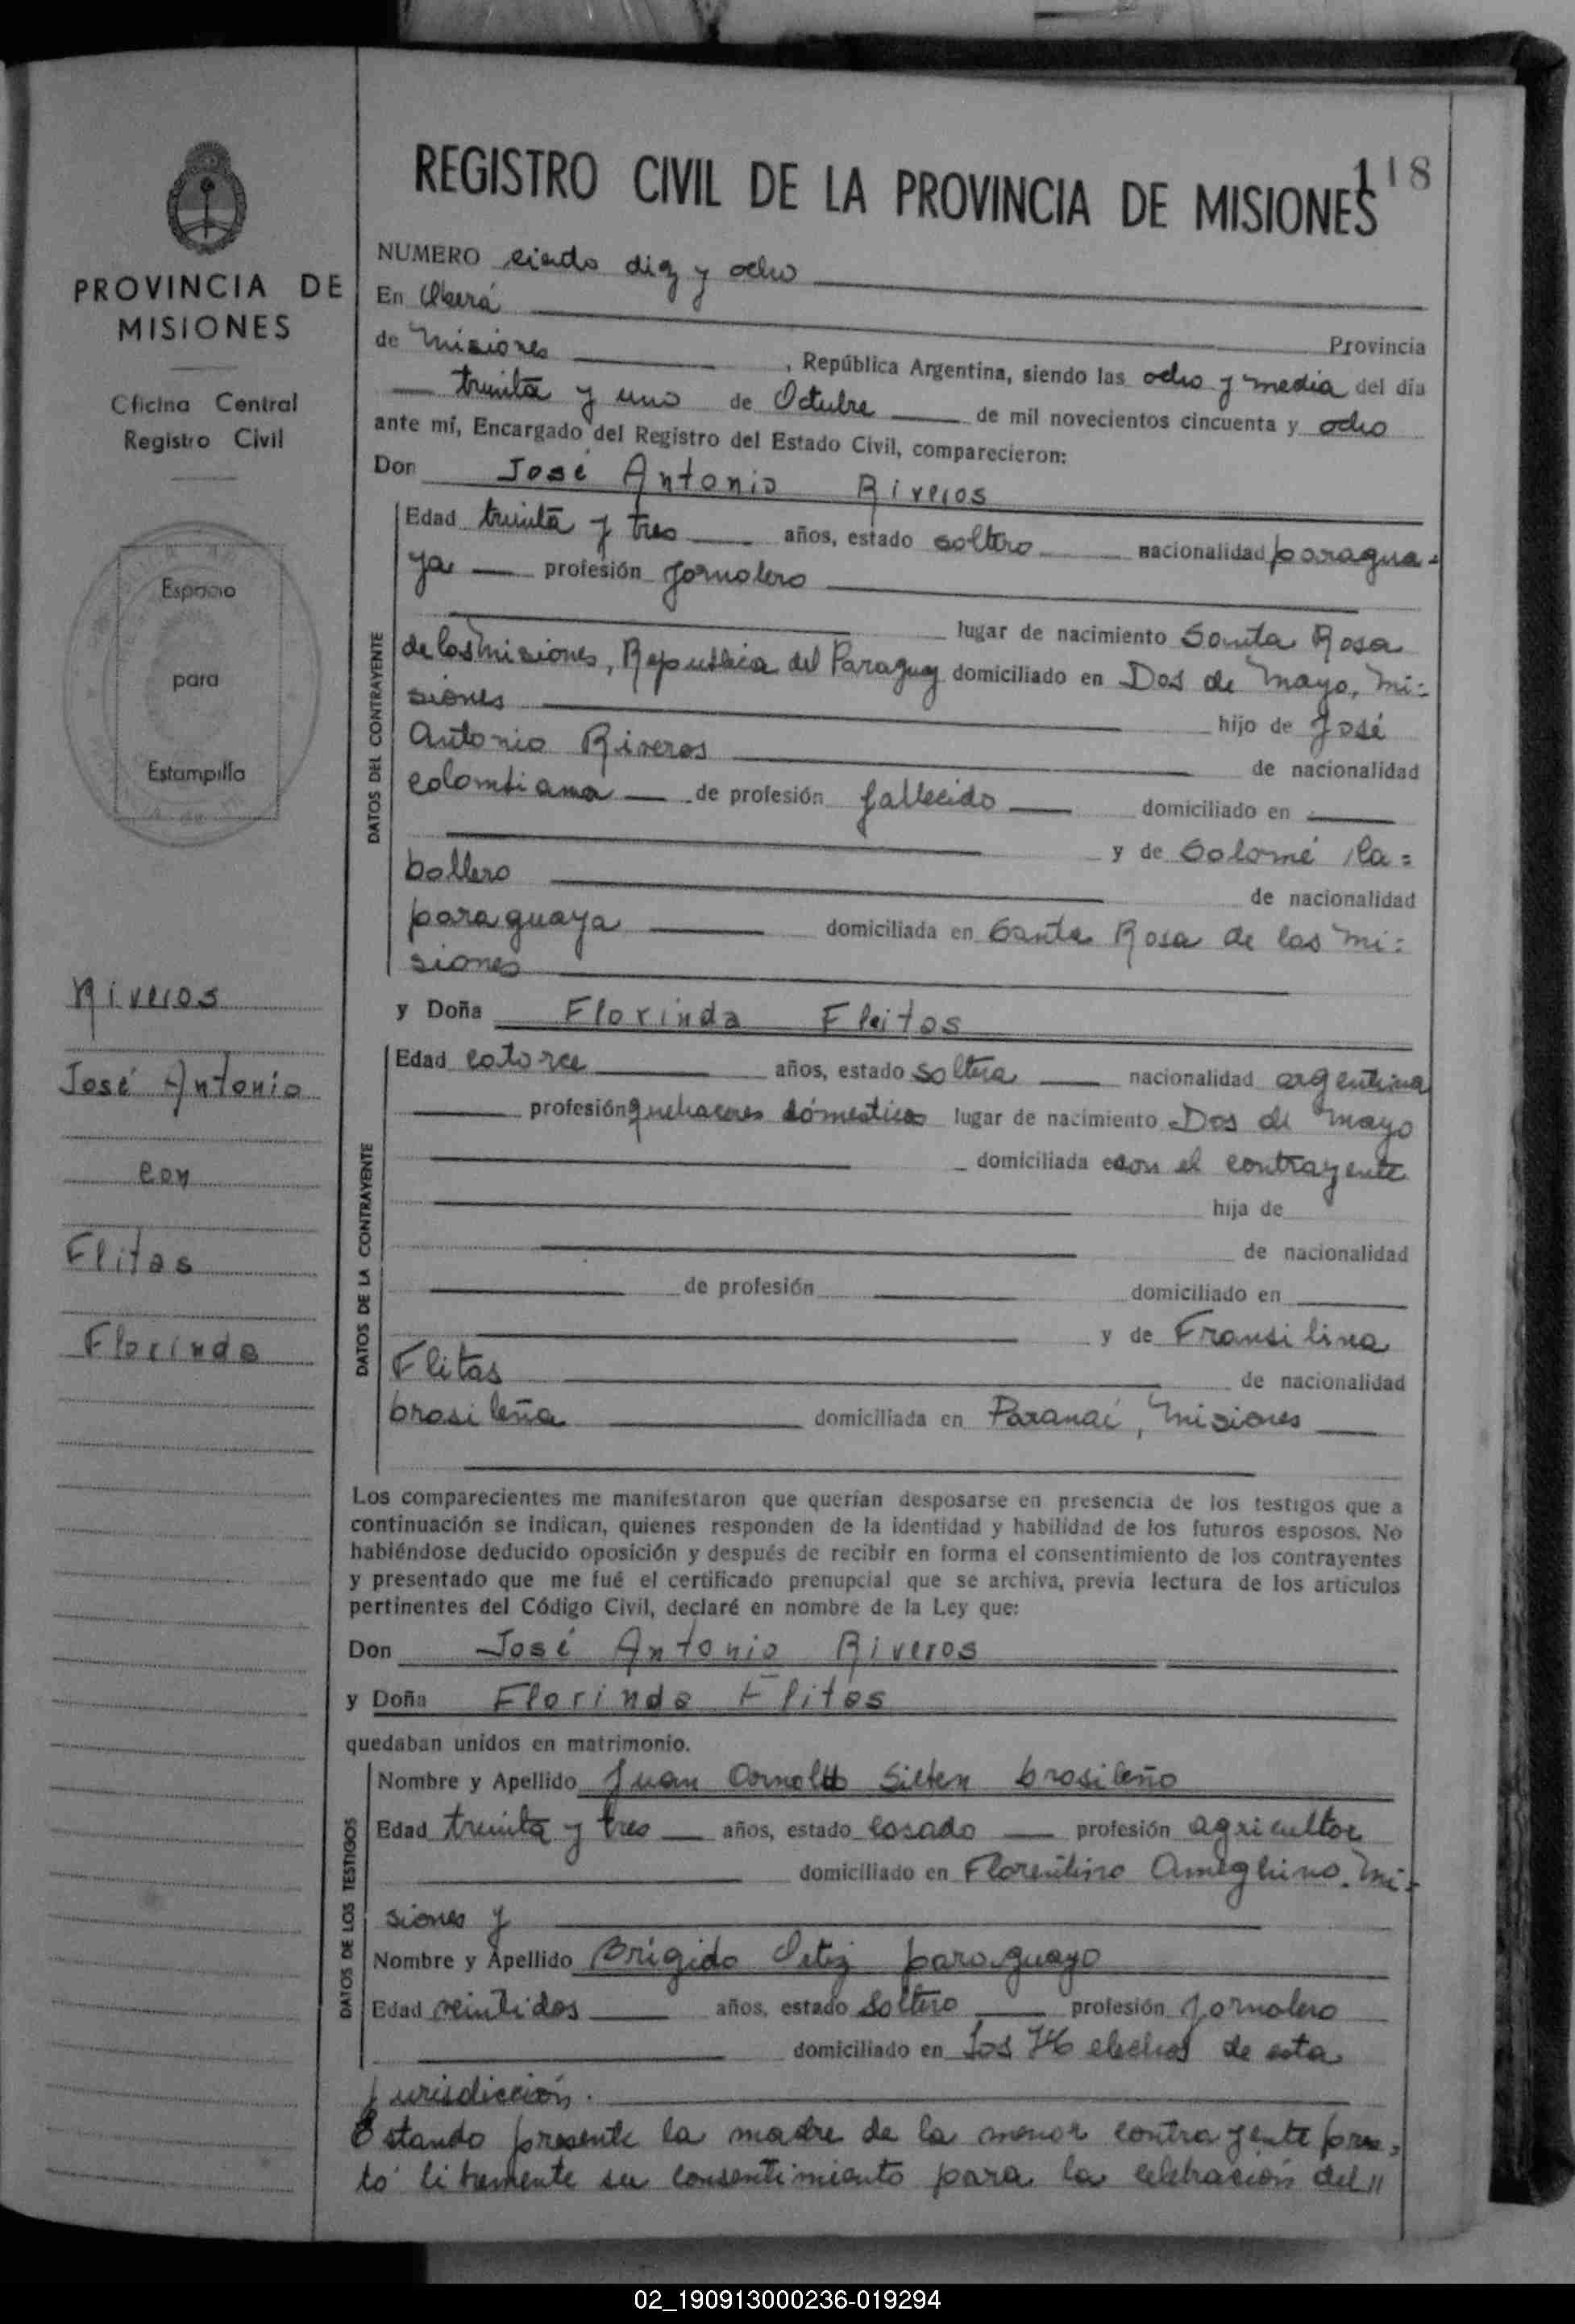 118
REGISTRO CIVIL DE LA PROVINCIA DE MISIONES
PROVINCIA DE
MISIONES
Oficina Central
Registro Civil
Espacio
para
Estampilla
Riveros
José Antonio
con
Flitas
Florinda
NUMERO ciento diez y ocho
En Oberá
Provincia
de Misiones , República Argentina, siendo las ocho y media del día
treinta y uno de Octubre de mil novecientos cincuenta y ocho
ante mí, Encargado del Registro del Estado Civil, comparecieron:
Don José Antonio Riveros
DATOS DEL CONTRAYENTE
Edad treinta y tres años, estado soltero nacionalidad paragua-
ya profesión jornalero
lugar de nacimiento Santa Rosa
de las Misiones, República del Paraguay domiciliado en Dos de Mayo, Mi-
siones hijo de José
Antonio Riveros de nacionalidad
colombiana de profesión fallecido domiciliado en
y de Salomé Ca=
ballero de nacionalidad
paraguaya domiciliada en Santa Rosa de las Mi=
siones
y Doña Florinda Fleitas
DATOS DE LA CONTRAYENTE
Edad catorce años, estado soltera nacionalidad argentina
profesión quehaceres domésticos lugar de nacimiento Dos de Mayo
domiciliada con el contrayente
hija de
de nacionalidad
de profesión domiciliado en
y de Fransilina
Flitas de nacionalidad
brasileña domiciliada en Paranaí, Misiones
Los comparecientes me manifestaron que querían desposarse en presencia de los testigos que a
continuación se indican, quienes responden de la identidad y habilidad de los futuros esposos. No
habiéndose deducido oposición y después de recibir en forma el consentimiento de los contrayentes
y presentado que me fué el certificado prenupcial que se archiva, previa lectura de los artículos
pertinentes del Código Civil, declaré en nombre de la Ley que:
Don José Antonio Riveros
y Doña Florinda Flitas
quedaban unidos en matrimonio.
DATOS DE LOS TESTIGOS
Nombre y Apellido Juan brasileño
Edad treinta y tres años, estado casado profesión agricultor
domiciliado en Florentino Ameghino. Mi-
siones y
Nombre y Apellido Brígido paraguayo
Edad veintidos años, estado soltero profesión jornalero
domiciliado en Los Helechos de esta
jurisdicción.
Estando presente la madre de la menor contrayente pres-
tó libremente su consentimiento para la celebración del //
02_190913000236-019294